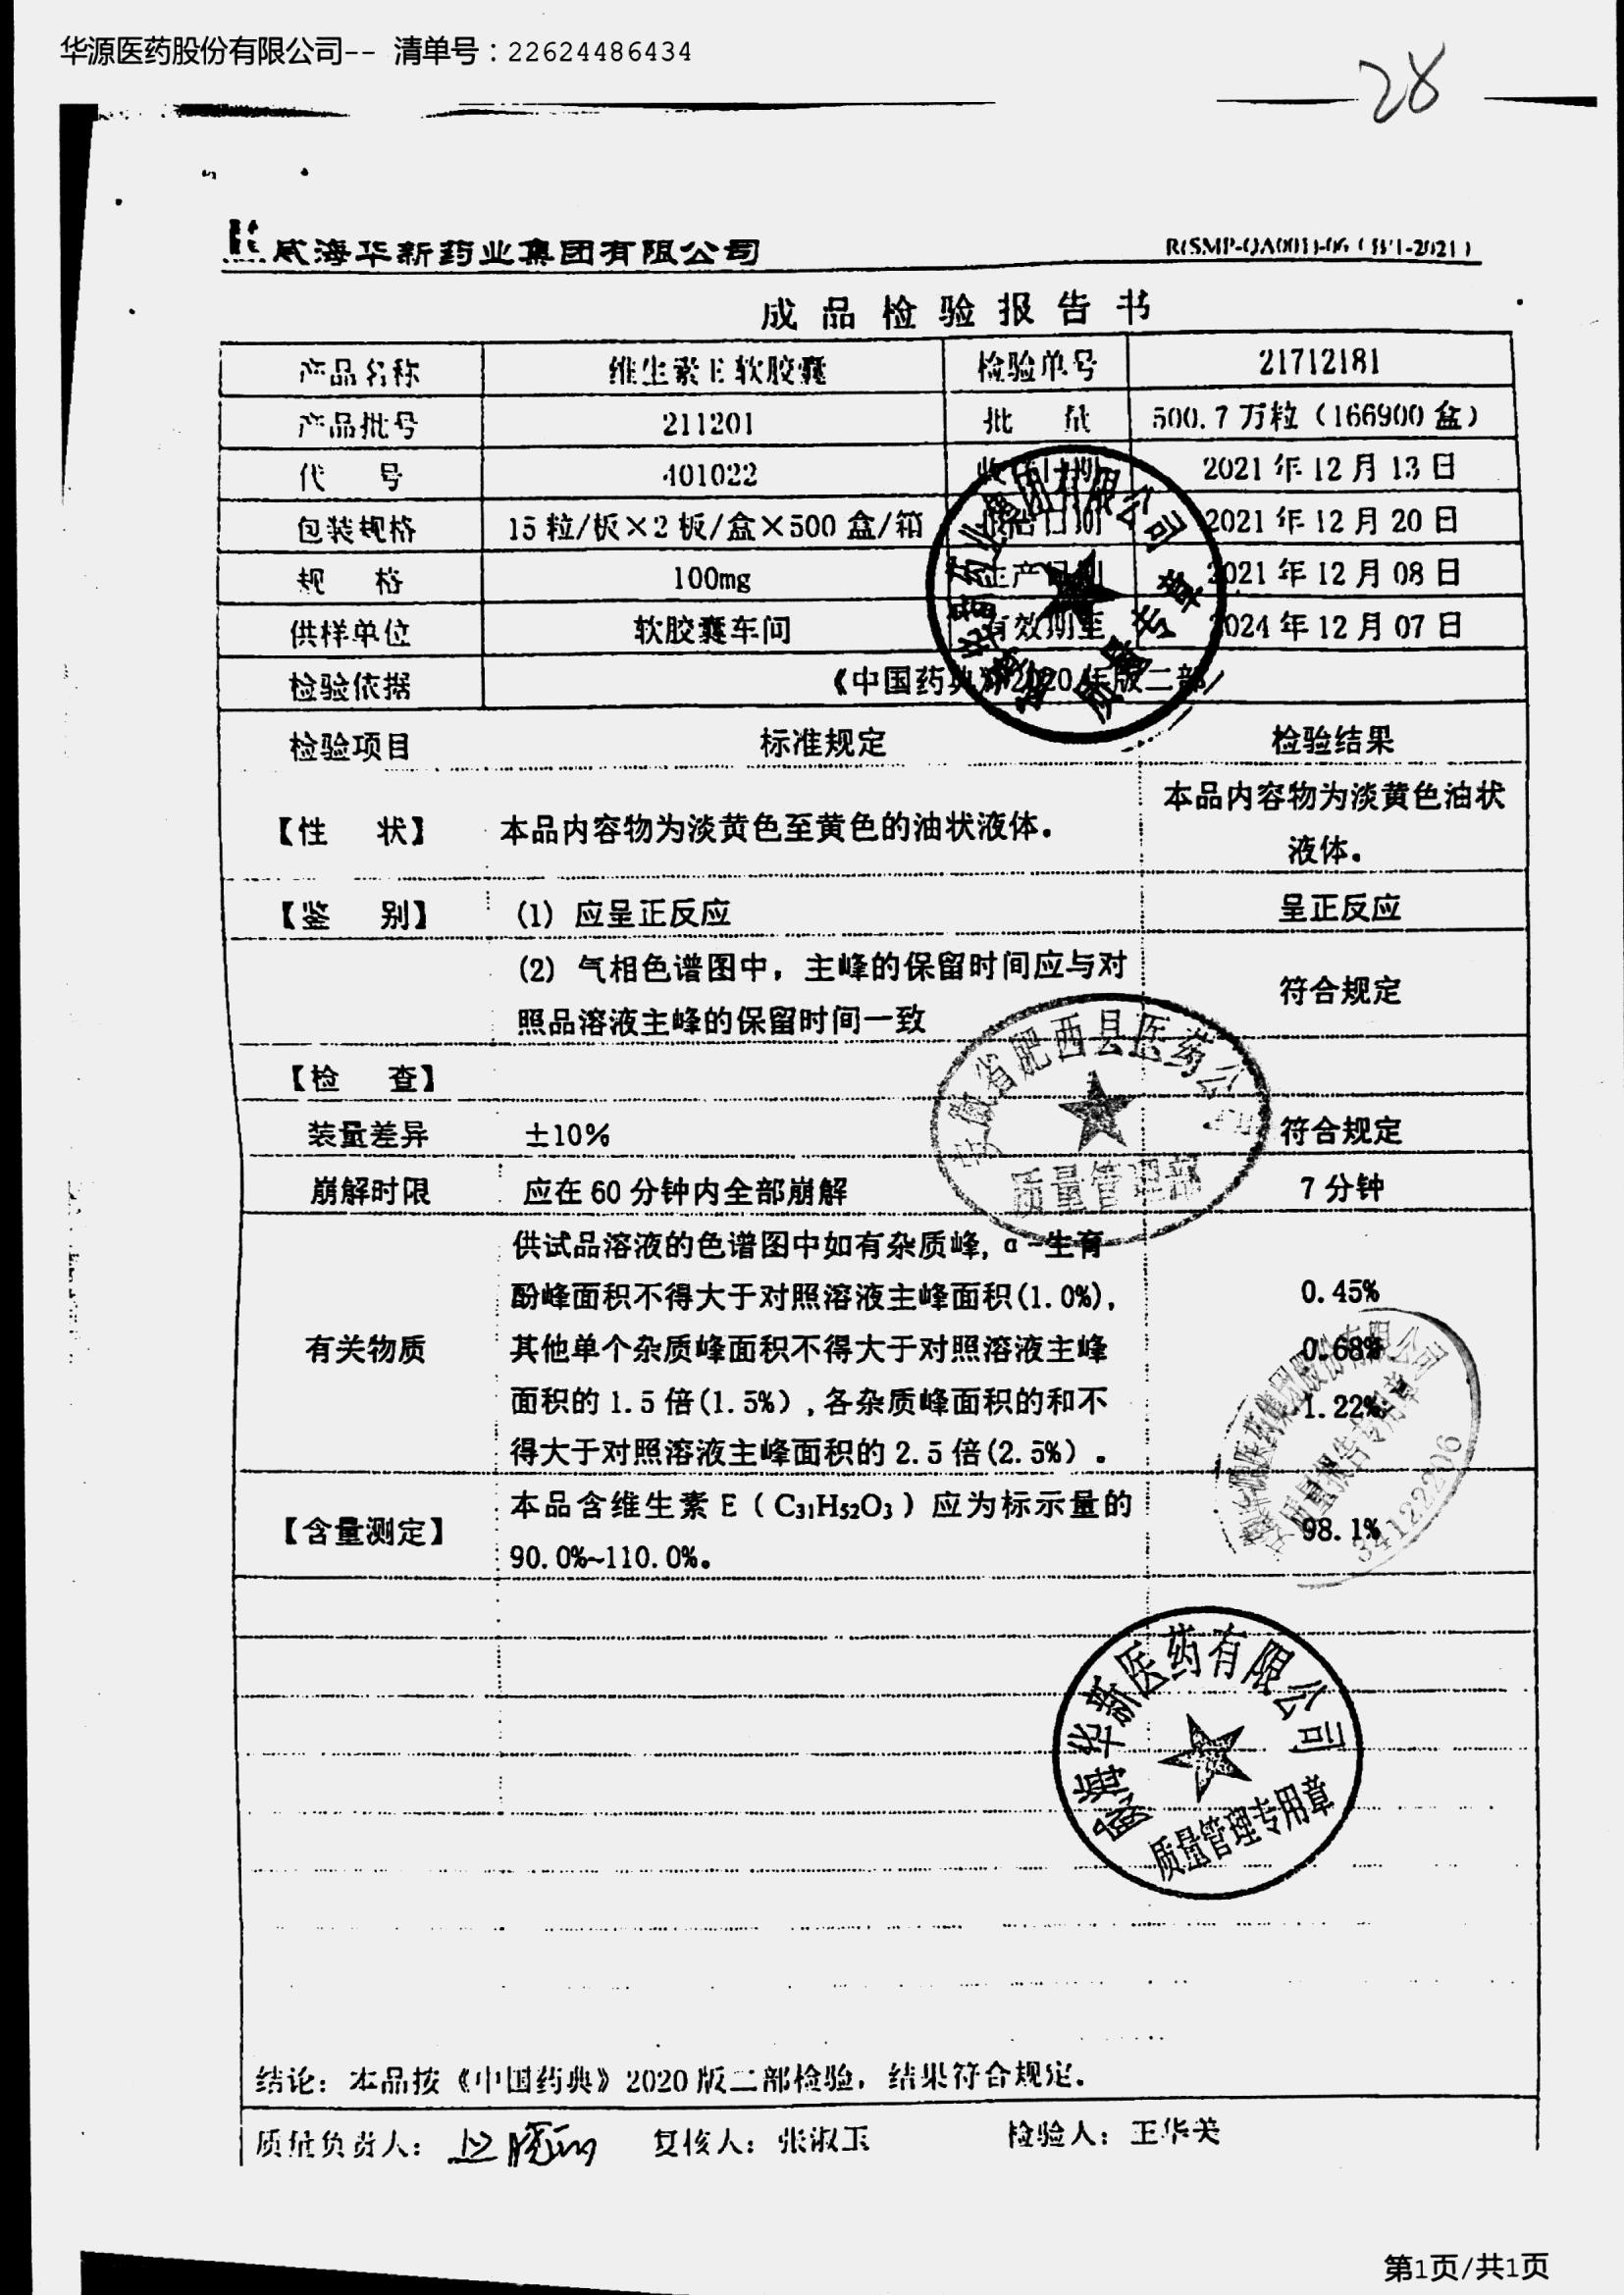 华源医药股份有限公司-- 清单号：22624486434
28
威海华新药业集团有限公司
成品检验报告书
产品名称 维生素E软胶囊 检验单号 21712181
产品批号 211201 批 量 500.7万粒（166900盒）
代 号 401022 2021年12月13日
包装规格 15粒/板×2板/盒×500盒/箱 2021年12月20日
规 格 100mg 生产日期 2021年12月08日
供样单位 软胶囊车间 有效期至 2024年12月07日
检验依据 《中国药典》2020年版二部
检验项目 标准规定 检验结果
本品内容物为淡黄色油状
【性 状】 本品内容物为淡黄色至黄色的油状液体。
液体。
【鉴 别】 (1) 应呈正反应 呈正反应
(2) 气相色谱图中，主峰的保留时间应与对
符合规定
照品溶液主峰的保留时间一致
【检 查】
装量差异 ±10% 符合规定
崩解时限 应在60分钟内全部崩解 7分钟
供试品溶液的色谱图中如有杂质峰，α-生育
酚峰面积不得大于对照溶液主峰面积(1.0%)， 0.45%
有关物质 其他单个杂质峰面积不得大于对照溶液主峰 0.68%
面积的1.5倍(1.5%)，各杂质峰面积的和不 1.22%
得大于对照溶液主峰面积的2.5倍(2.5%)。
本品含维生素E（C31H52O3）应为标示量的
【含量测定】 98.1%
90.0%~110.0%。
安徽省肥西县医药公司
质量管理部
质量报告专用章
34122206
威海华新医药有限公司
质量管理专用章
结论：本品按《中国药典》2020版二部检验，结果符合规定。
质量负责人： 复核人：张淑玉 检验人：王华美
第1页/共1页